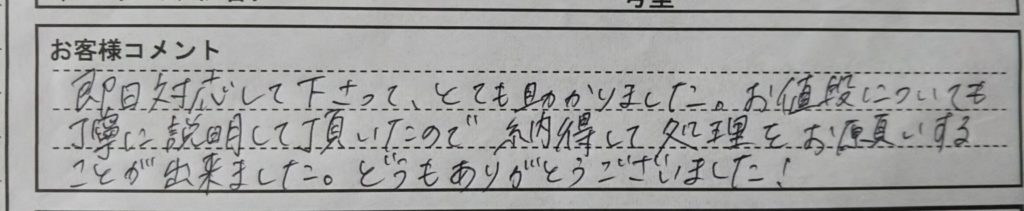 お客様コメント
即日対応して下さって、とても助かりました。お値段についても
丁寧に説明して頂いたので納得して処理をお願いする
ことが出来ました。どうもありがとうございました!